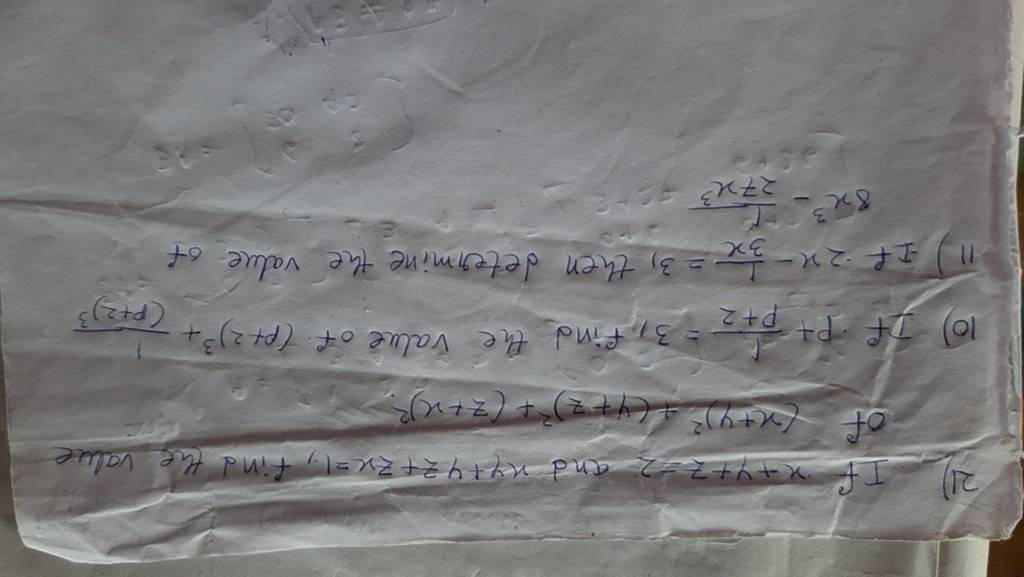 21) If x+y+z=2 and xy+yz+zx=1, find the value
of (x+y)² + (y+z)² + (z+x)².
10) If p+ 1/p+2 = 3, find the value of (p+2)³ + 1/(p+2)³
11) If 2x - 1/3x = 3, then determine the value of
8x³ - 1/27x³